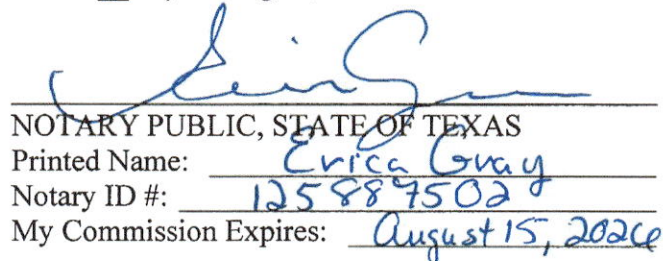 NOTARY PUBLIC, STATE OF TEXAS
Printed Name: Erica Gray
Notary ID #: 125887502
My Commission Expires: August 15, 2026